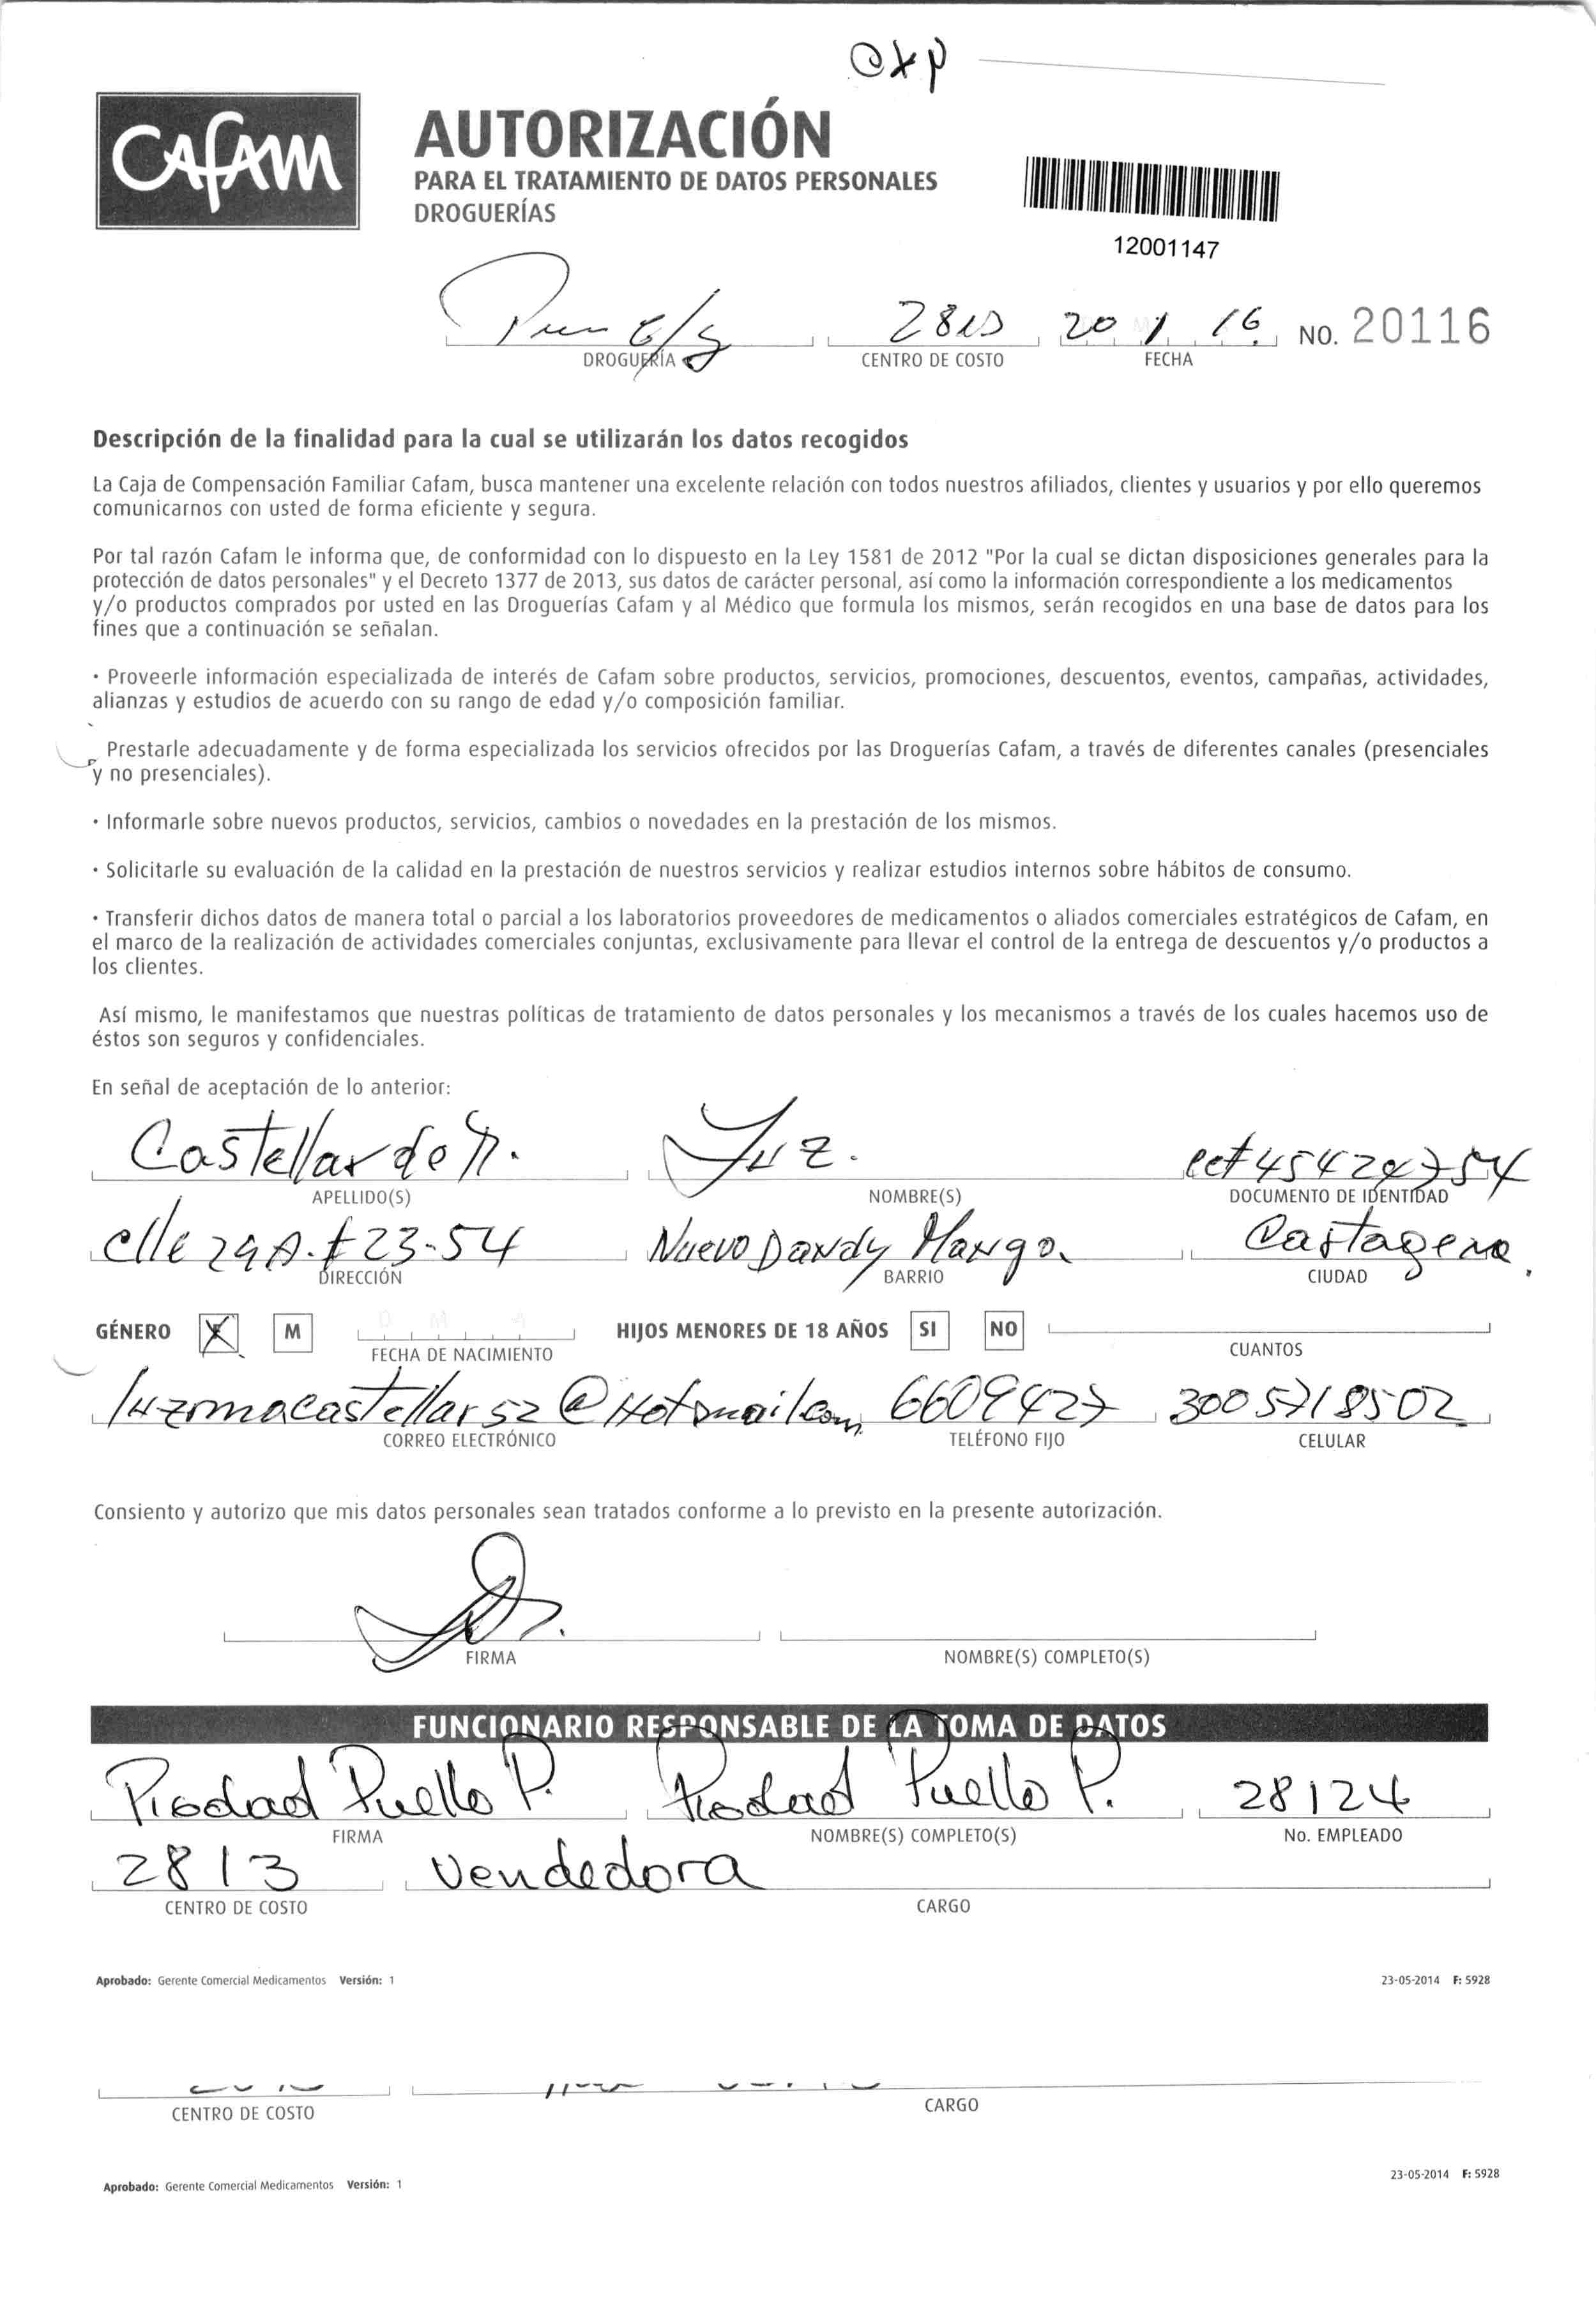 CAFAM
AUTORIZACIÓN
PARA EL TRATAMIENTO DE DATOS PERSONALES
DROGUERÍAS
12001147
20 1 16 NO. 20116
DROGUERÍA CENTRO DE COSTO FECHA
Descripción de la finalidad para la cual se utilizarán los datos recogidos
La Caja de Compensación Familiar Cafam, busca mantener una excelente relación con todos nuestros afiliados, clientes y usuarios y por ello queremos
comunicarnos con usted de forma eficiente y segura.
Por tal razón Cafam le informa que, de conformidad con lo dispuesto en la Ley 1581 de 2012 "Por la cual se dictan disposiciones generales para la
protección de datos personales" y el Decreto 1377 de 2013, sus datos de carácter personal, así como la información correspondiente a los medicamentos
y/o productos comprados por usted en las Droguerías Cafam y al Médico que formula los mismos, serán recogidos en una base de datos para los
fines que a continuación se señalan.
· Proveerle información especializada de interés de Cafam sobre productos, servicios, promociones, descuentos, eventos, campañas, actividades,
alianzas y estudios de acuerdo con su rango de edad y/o composición familiar.
Prestarle adecuadamente y de forma especializada los servicios ofrecidos por las Droguerías Cafam, a través de diferentes canales (presenciales
y no presenciales).
· Informarle sobre nuevos productos, servicios, cambios o novedades en la prestación de los mismos.
· Solicitarle su evaluación de la calidad en la prestación de nuestros servicios y realizar estudios internos sobre hábitos de consumo.
· Transferir dichos datos de manera total o parcial a los laboratorios proveedores de medicamentos o aliados comerciales estratégicos de Cafam, en
el marco de la realización de actividades comerciales conjuntas, exclusivamente para llevar el control de la entrega de descuentos y/o productos a
los clientes.
Así mismo, le manifestamos que nuestras políticas de tratamiento de datos personales y los mecanismos a través de los cuales hacemos uso de
éstos son seguros y confidenciales.
En señal de aceptación de lo anterior:
Castellar de Luz.
APELLIDO(S) NOMBRE(S) DOCUMENTO DE IDENTIDAD
clle 29A. # 23-54 Nuevo Dandy Mango. Cartagena.
DIRECCIÓN BARRIO CIUDAD
GÉNERO F M HIJOS MENORES DE 18 AÑOS SI NO
FECHA DE NACIMIENTO CUANTOS
luzmacastellar52@Hotmail.com 6609427 3005718502
CORREO ELECTRÓNICO TELÉFONO FIJO CELULAR
Consiento y autorizo que mis datos personales sean tratados conforme a lo previsto en la presente autorización.
FIRMA NOMBRE(S) COMPLETO(S)
FUNCIONARIO RESPONSABLE DE LA TOMA DE DATOS
Piedad Puello P. Piedad Puello P. 28124
FIRMA NOMBRE(S) COMPLETO(S) No. EMPLEADO
2813 Vendedora
CENTRO DE COSTO CARGO
Aprobado: Gerente Comercial Medicamentos Versión: 1 23-05-2014 F: 5928
CENTRO DE COSTO CARGO
Aprobado: Gerente Comercial Medicamentos Versión: 1 23-05-2014 F: 5928